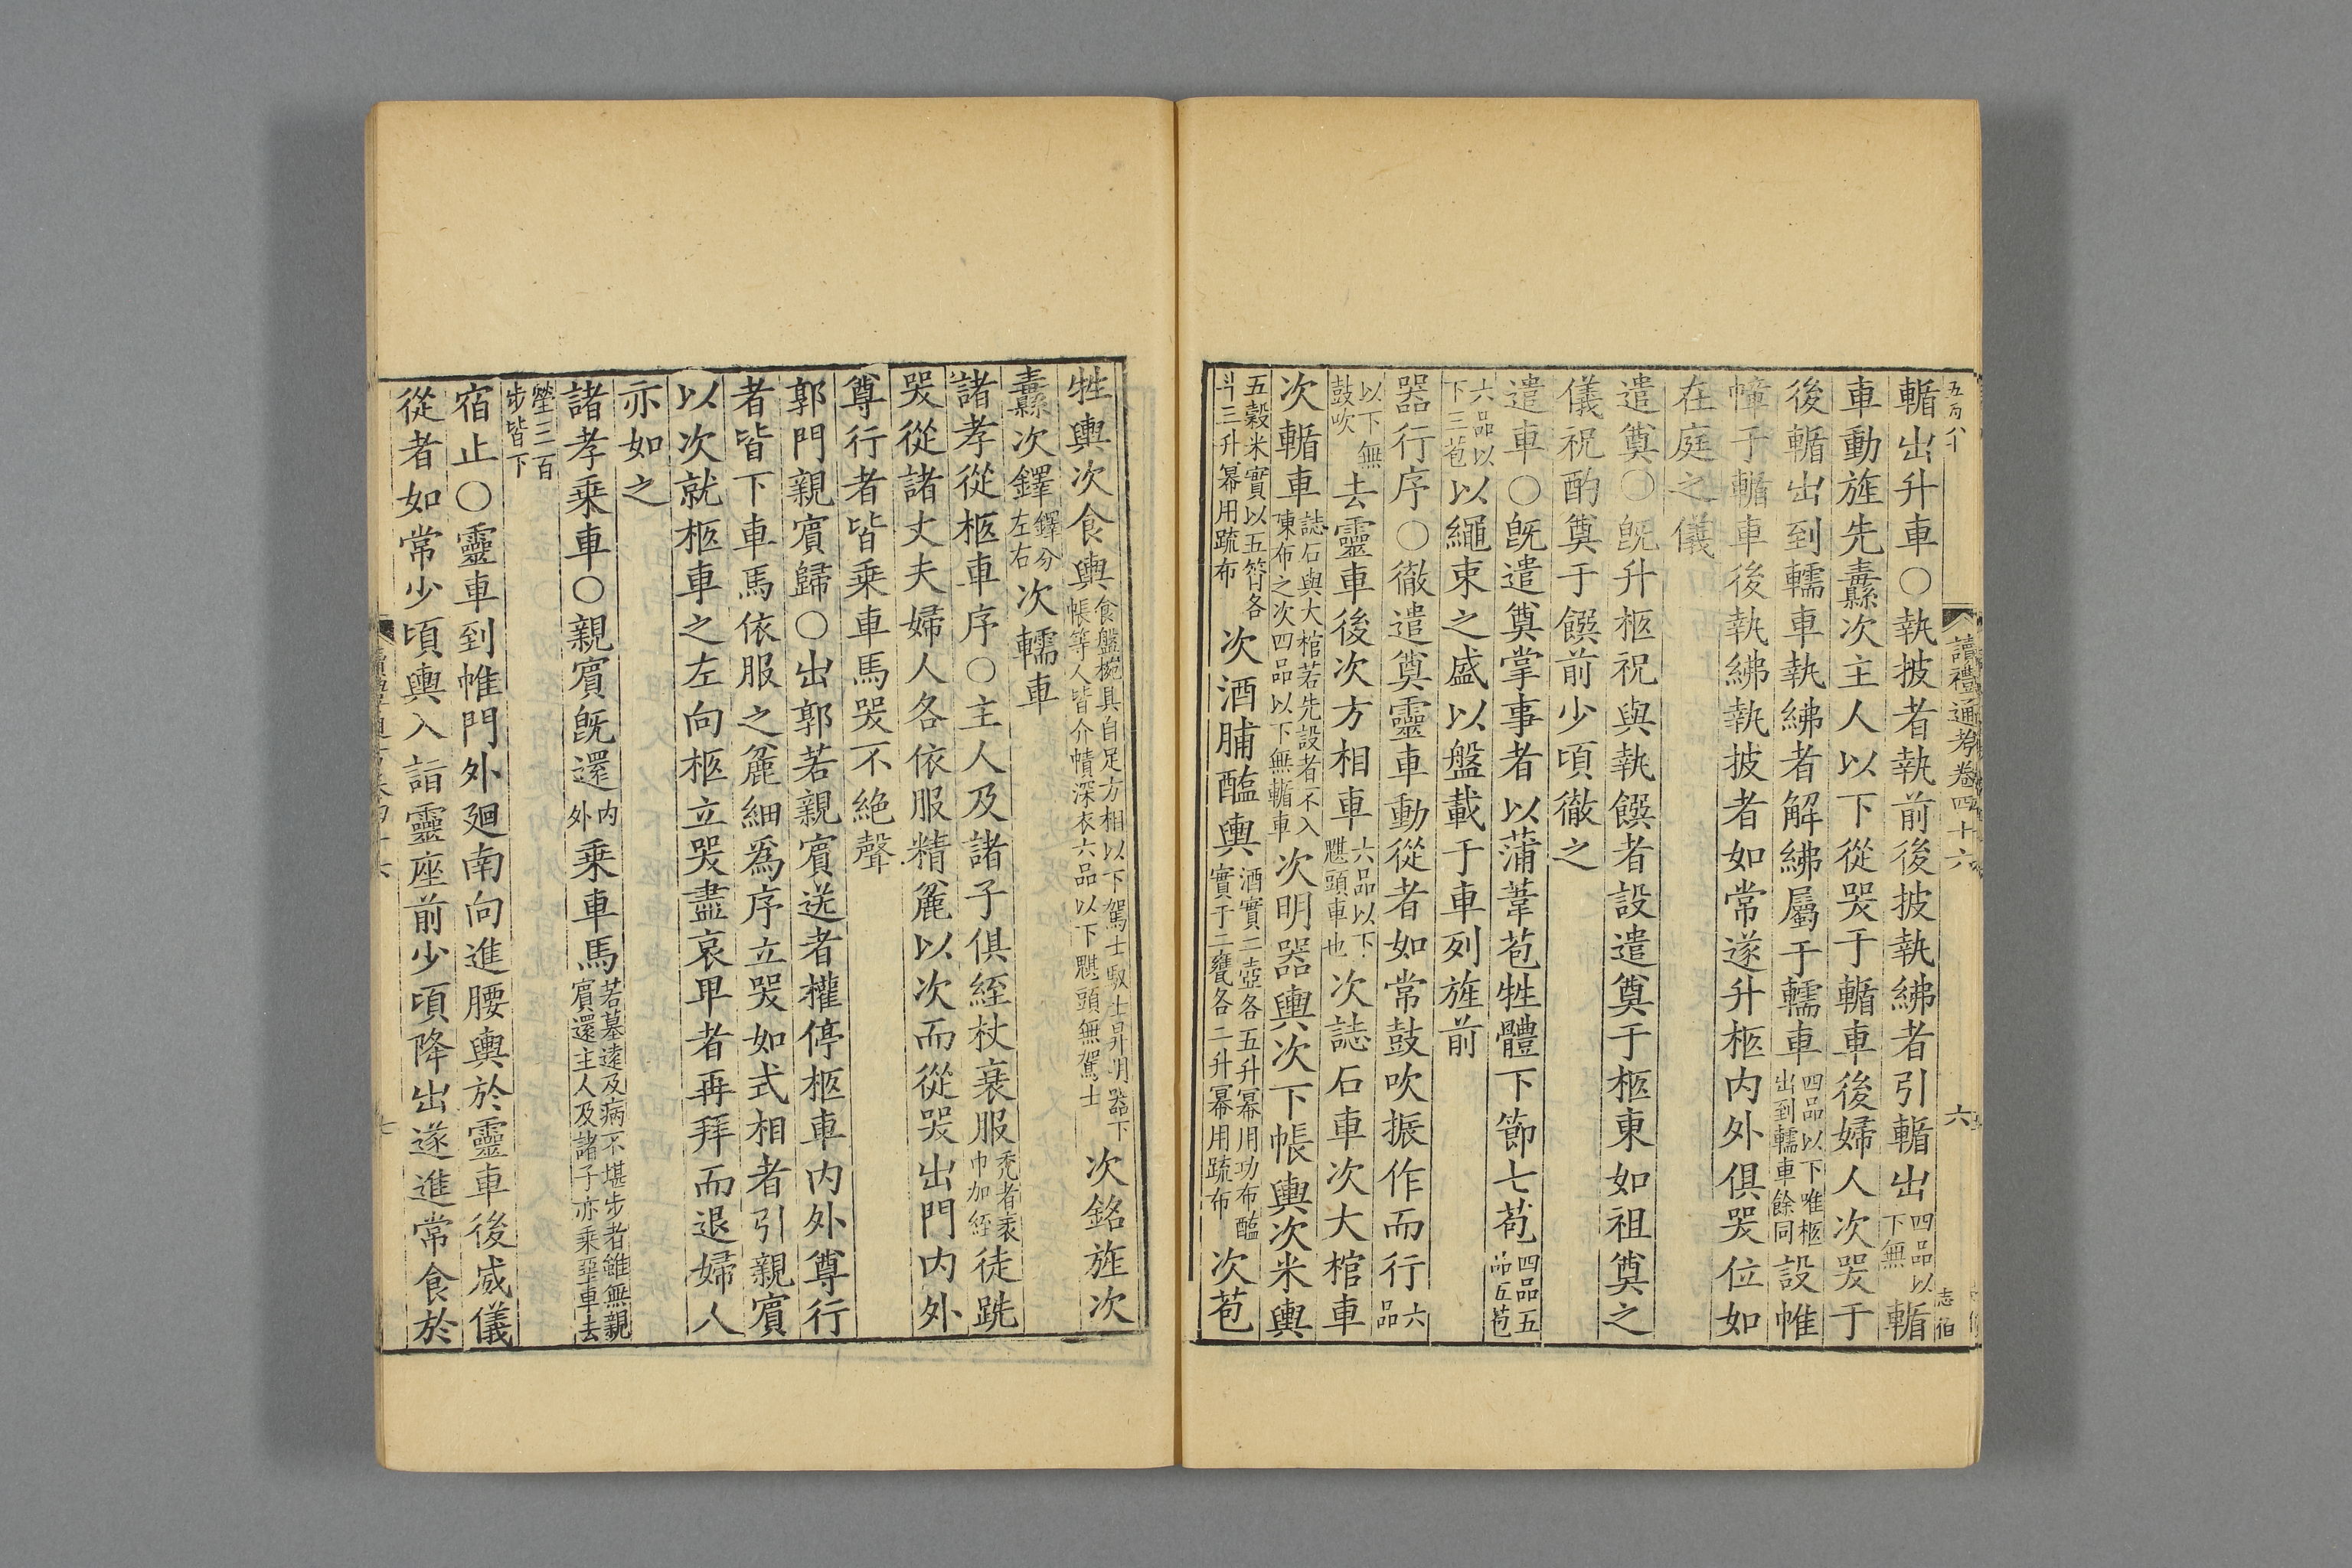 五百八十
讀禮通考卷四十六
六
志伯
輴出升車○執披者執前後披執紼者引輴出四品以下無輴
車動旌先纛次主人以下從哭于輴車後婦人次哭于
後輴出到轜車執紼者解紼屬于轜車四品以下唯柩出到轜車餘同設帷
幛于輴車後執紼執披者如常遂升柩内外俱哭位如
在庭之儀
遣奠○既升柩祝與執饌者設遣奠于柩東如祖奠之
儀祝酌奠于饌前少頃徹之
遣車○既遣奠掌事者以蒲葦苞牲體下節七苞四品五品五苞
六品以下三苞以繩束之盛以盤載于車列旌前
器行序○徹遣奠靈車動從者如常鼓吹振作而行六品
以下無鼓吹去靈車後次方相車六品以下魌頭車也次誌石車次大棺車
次輴車誌石與大棺若先設者不入陳布之次四品以下無輴車次明器輿次下帳輿次米輿
五穀米實以五筲各斗三升冪用疏布次酒脯醢輿酒實二壺各五升冪用功布醢實于二甕各二升冪用疏布次苞
牲輿次食輿食盤椀具自足方相以下駕士馭士舁明器下帳等人皆介幘深衣六品以下魌頭無駕士次銘旌次
纛次鐸鐸分左右次轜車
諸孝從柩車序○主人及諸子俱絰杖衰服秃者衰巾加絰徒跣
哭從諸丈夫婦人各依服精麄以次而從哭出門内外
尊行者皆乘車馬哭不絶聲
郭門親賓歸○出郭若親賓送者權停柩車内外尊行
者皆下車馬依服之麄細爲序立哭如式相者引親賓
以次就柩車之左向柩立哭盡哀卑者再拜而退婦人
亦如之
諸孝乘車○親賓既還内外乘車馬若墓遠及病不堪步者雖無親賓還主人及諸子亦乘堊車去
塋三百步皆下
宿止○靈車到帷門外廻南向進腰輿於靈車後威儀
從者如常少頃輿入詣靈座前少頃降出遂進常食於